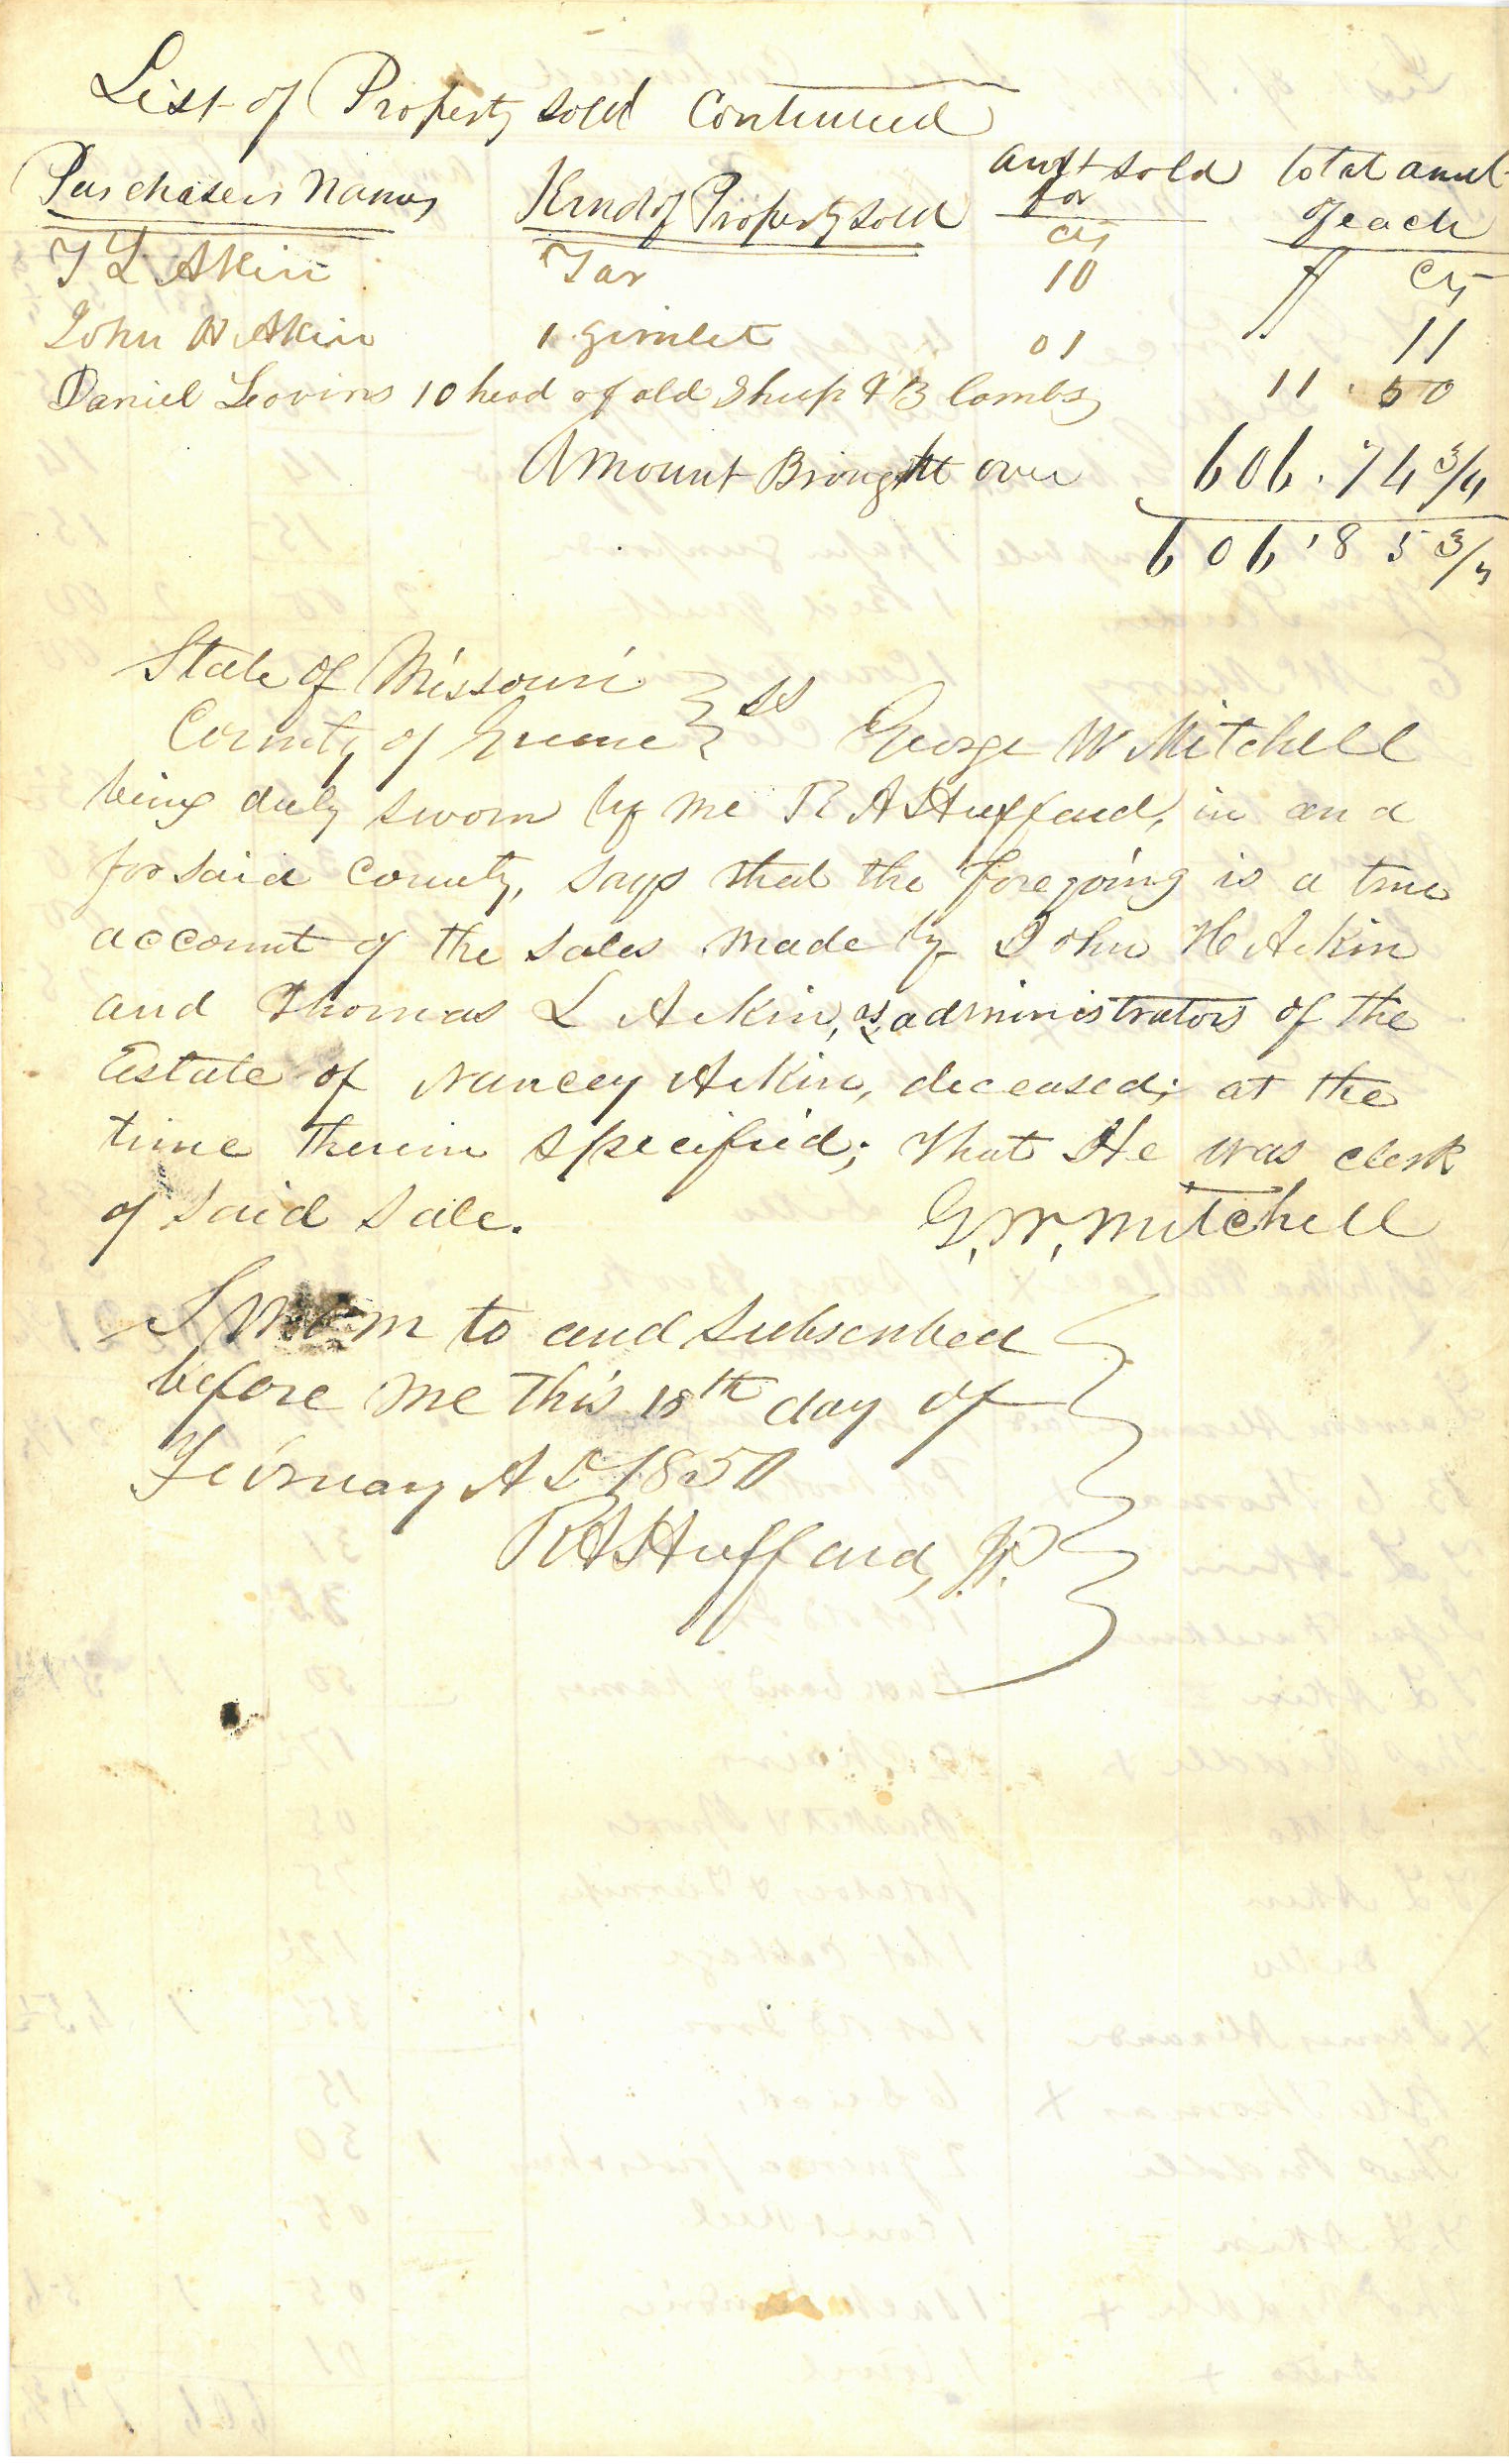 List of Property sold Continued
Purchasers Names Kind of Property sold amt sold for total amt of each
cts
T L Akin Tar 10 $ cts
John H Akin 1 gimlet 01 11
Daniel Leovins 10 head of old Sheep & 3 lambs 11.50
Amount Brought over 606.74 3/4
606.85 3/4
State of Missouri } ss
County of Greene } George W Mitchell
being duly sworn by me R A Huffard, in and
for said County, says that the foregoing is a true
account of the sales made by John H Akin
and Thomas L Akin, as administrators of the
Estate of Nancey Akin, deceased; at the
time therein specified; that He was clerk
of said sale. G. W. Mitchell
Sworn to and subscribed
before me this 18th day of
February A D 1850
R A Huffard, J.P.